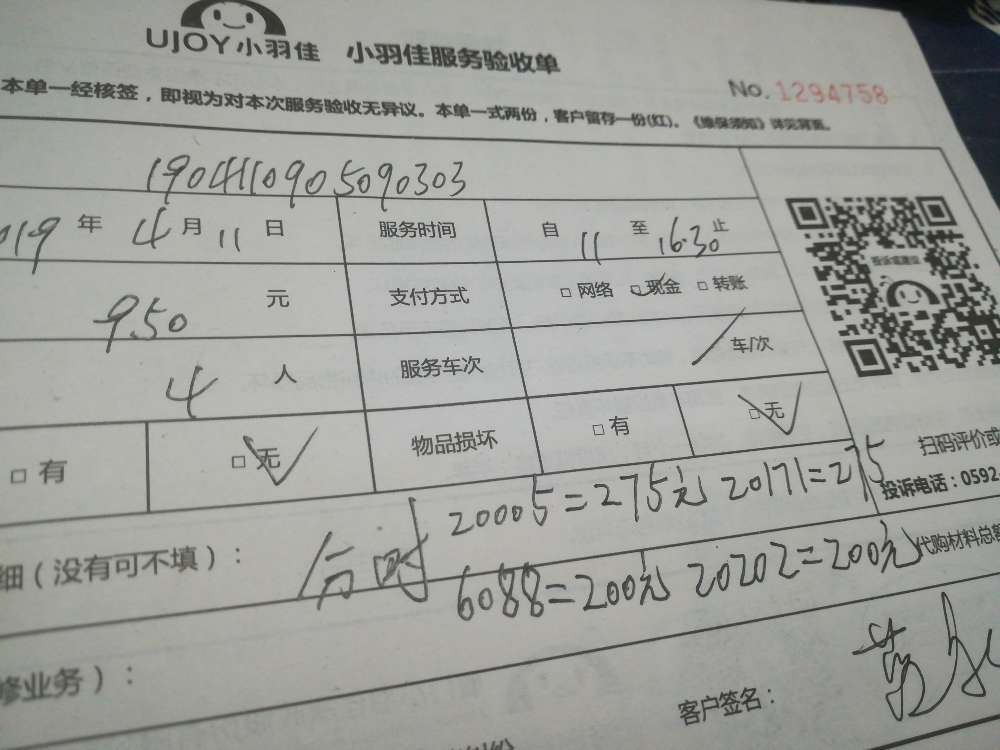 UJOY 小羽佳 小羽佳服务验收单
No. 1294758
本单一经核签，即视为对本次服务验收无异议。本单一式两份，客户留存一份(红)。《维保须知》详见背面。
1904110905090303
019 年 4 月 11 日 服务时间 自 11 至 16.30 止
950 元 支付方式 □ 网络 □ 现金 □ 转账
投诉或建议
4 人 服务车次 / 车/次
□ 有 □ 无 物品损坏 □ 有 □ 无
扫码评价或
投诉电话：0592
20005=275元 20171=275
细（没有可不填）：
6088=200元 20202=200元 代购材料总额
修业务）：
客户签名：